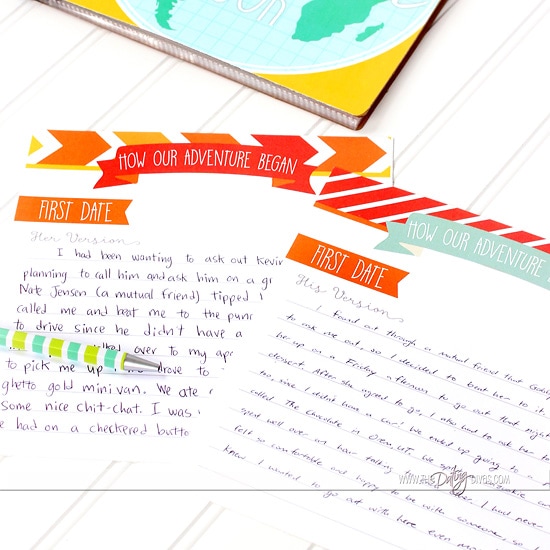 HOW OUR ADVENTURE BEGAN
FIRST DATE
Her Version
I had been wanting to ask out Kevin
planning to call him and ask him on a
Nate Jensen (a mutual friend) tipped
called me and beat me to the
to drive since he didn't have a
over to my
to pick me up drove to
ghetto gold minivan. We ate
some nice chit-chat. I was
had on a checkered
HOW OUR ADVENTURE
FIRST DATE
His Version
I found out through a mutual friend that
to ask me out, so I decided to beat her to it.
her up on a Friday afternoon to go out that night
closest. After she agreed to go, I also had to ask her to
too, since I didn't have a car! We ended up going to a
called The Chocolate in Orem, UT. We
spent well over an hour talking I had never
felt so comfortable and happy to be with someone, so I
knew I wanted to go out with here even
WWW.THE Dating DIVAS.COM